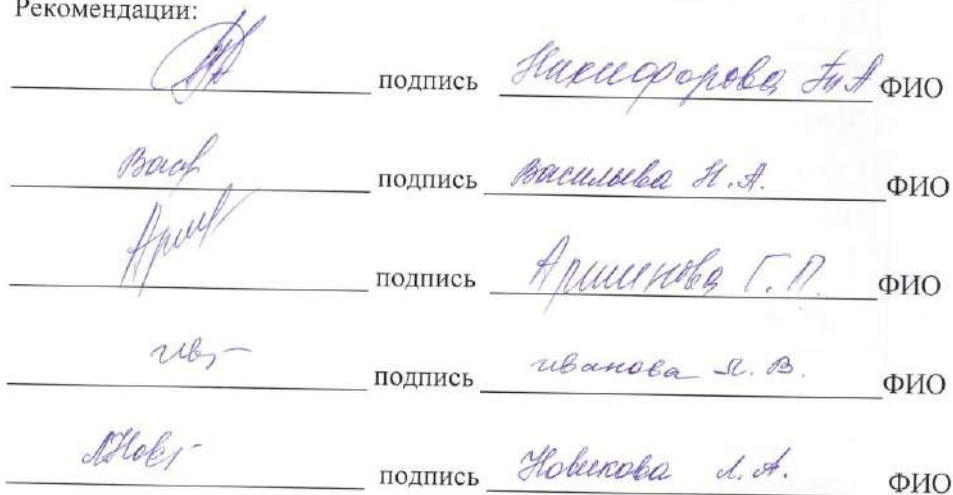 Рекомендации:
подпись Никифорова Т.А ФИО
Васф подпись Васильева Н.А. ФИО
подпись Г.П. ФИО
подпись иванова Л.В. ФИО
ЛНов подпись Новикова Л.А. ФИО